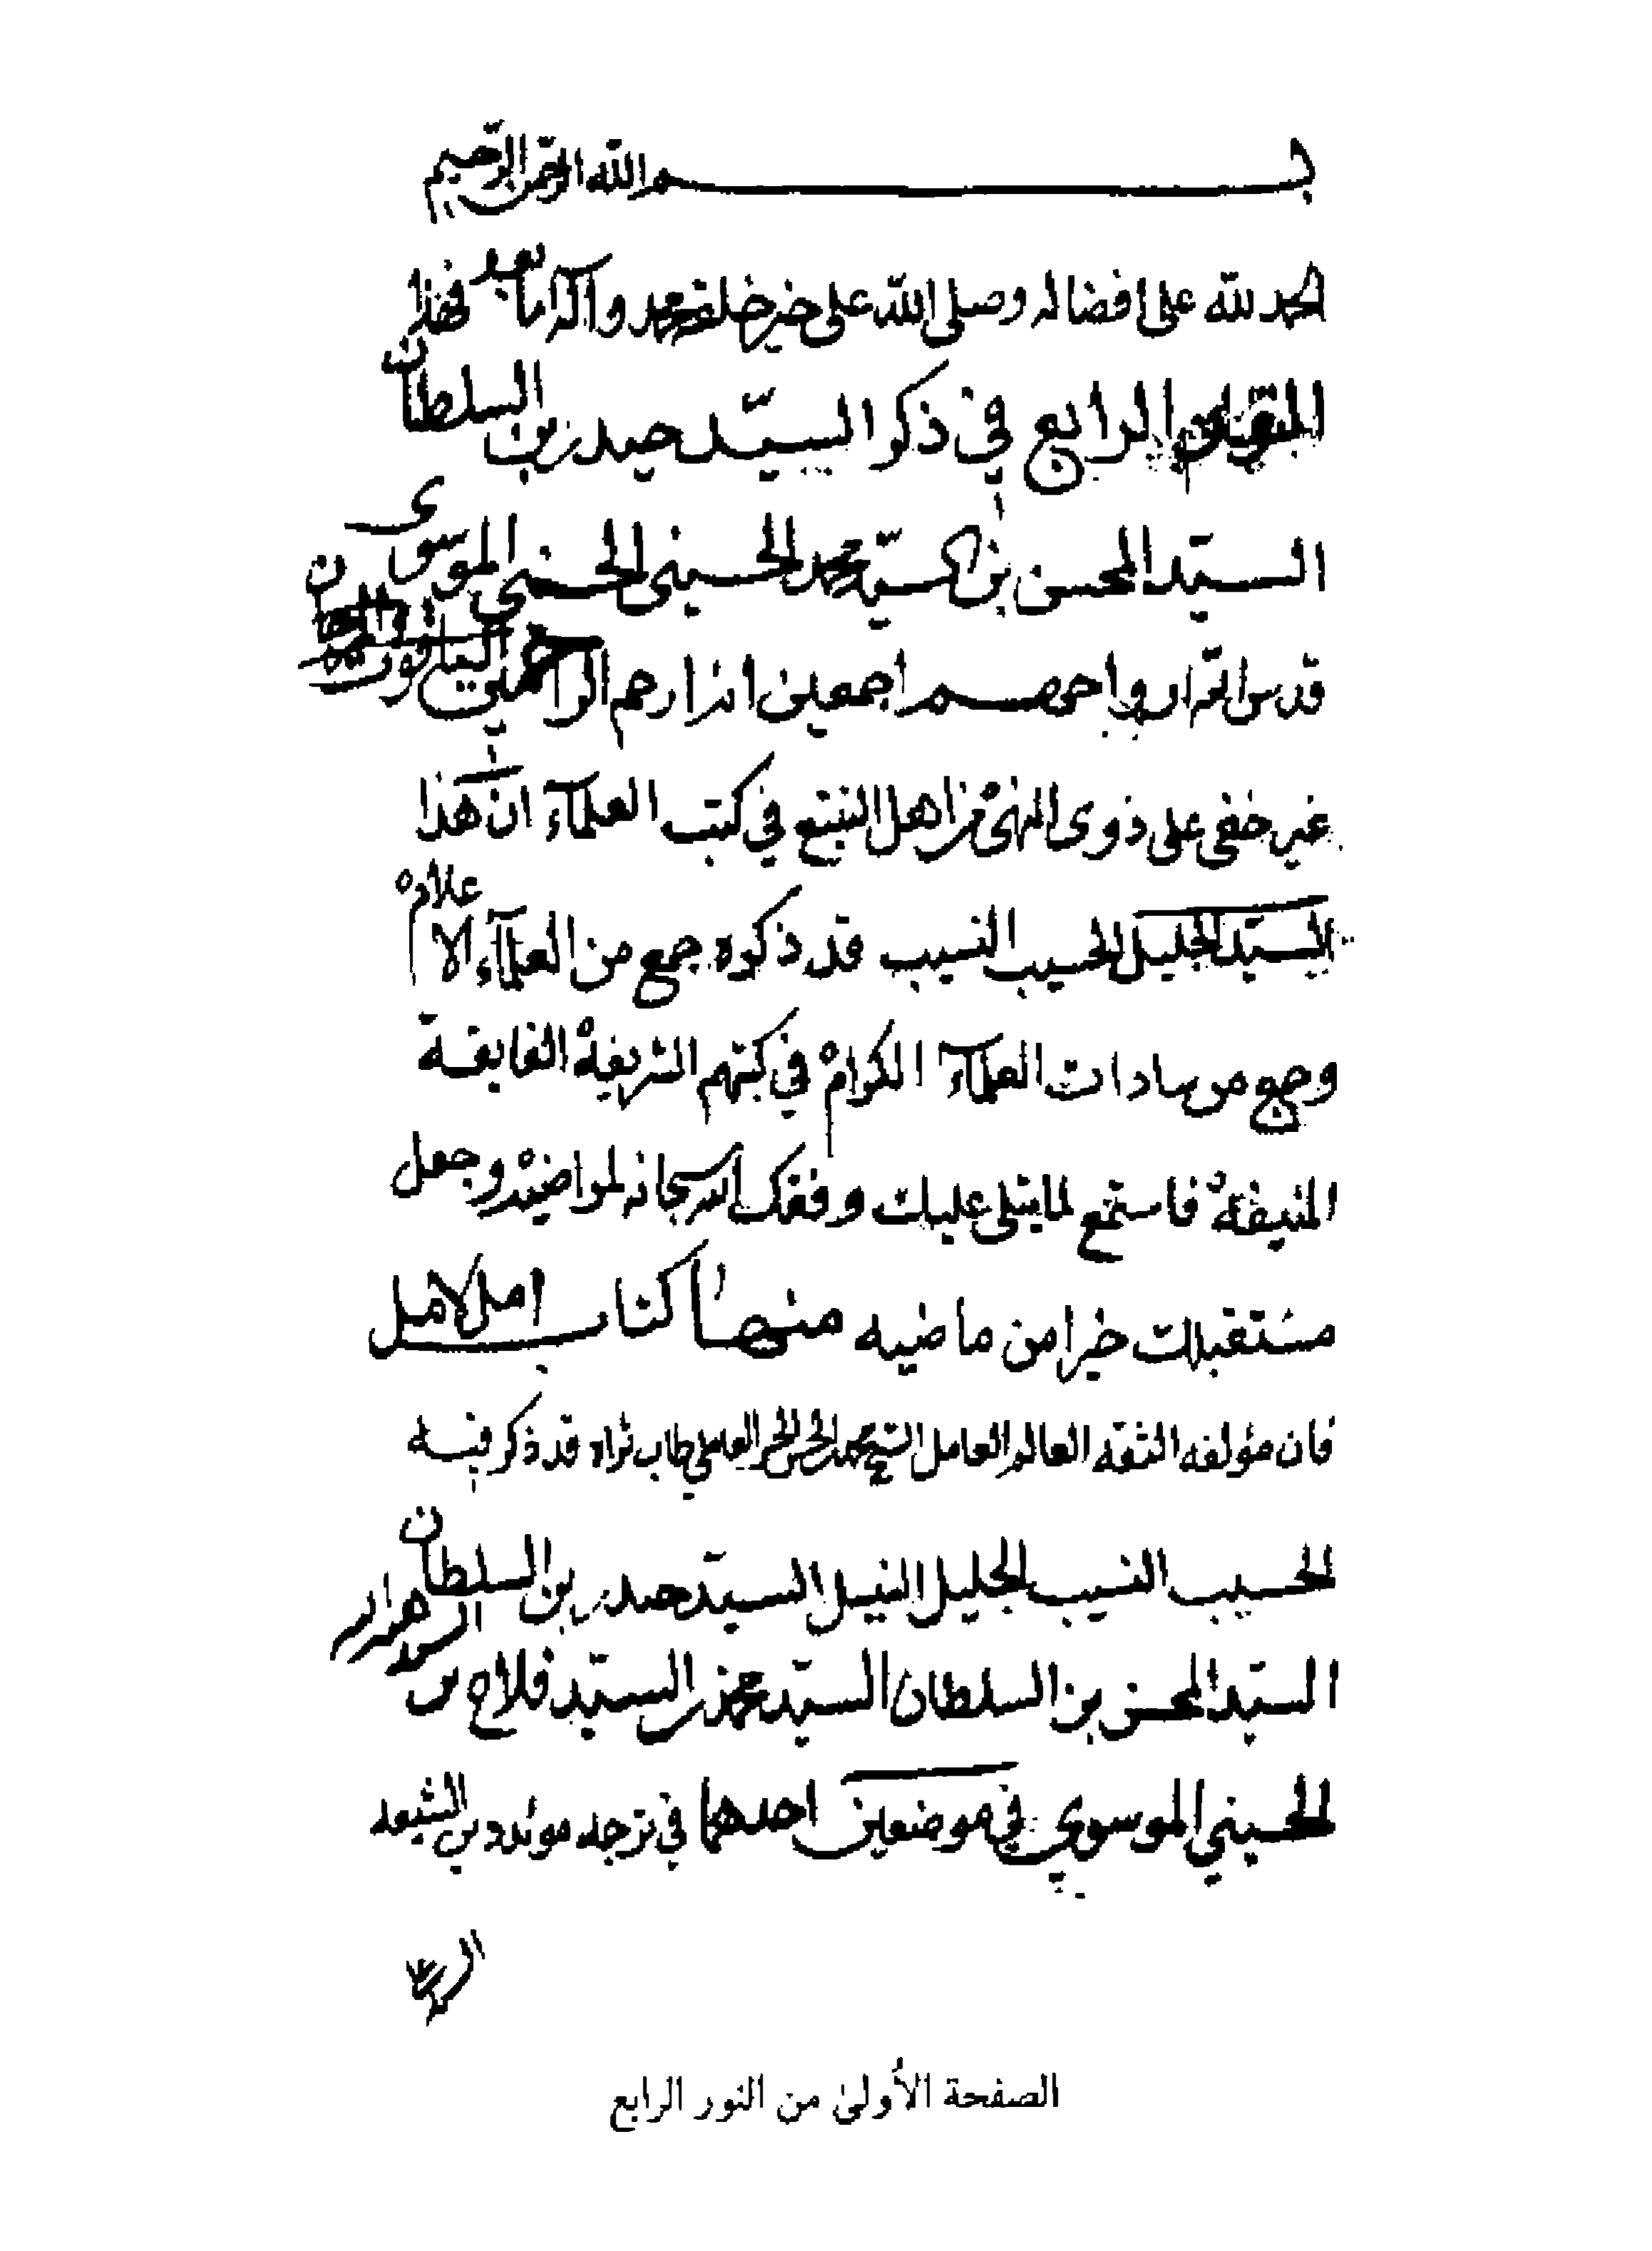 بسم الله الرحمن الرحيم
الحمد لله على افضاله وصلى الله على خير خلقه محمد وآله اما بعد فهذا
الرابع في ذكر السيّد حيدر بن السلطان
السيّد المحسن بن السيّد محمد الحسيني الحسني الموسوى
قدس الله ارواحهم اجمعين انه ارحم الراحمين
غير خفى على ذوى النهىٰ من اهل التتبع في كتب العلمآء انّ هذا
السيّد الجليل الحسيب النسيب قد ذكره جمع من العلمآء الاعلامْ
وجمع من سادات العلمآء الكرامْ في كتبهم الشريفهْ الفايقة
المنيفهْ فاستمع لما يتلى عليك وفقك الله سبحانه لمراضيهْ وجعل
مستقبلك خيرا من ماضيه منها كتاب امل الامل
فان مؤلفه الثقه العالم العامل الشيخ محمد الحسن الحر العاملي طاب ثراه قد ذكر فيه
الحسيب النسيب الجليل النبيل السيّد حيدر بن السلطان
السيّد المحسن بن السلطان السيّد محمد بن السيّد فلاح بن
الحسيني الموسوي في موضعين احدهما في ترجمه
الصفحة الأولىٰ من النور الرابع